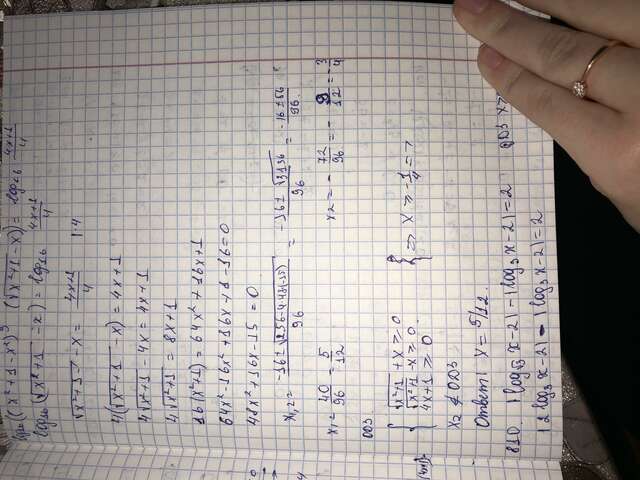 (√x²+1 - x) = log₁₆ 4x+1/4
log₁₆ (√x²+1 - x) = log₁₆ 4x+1/4
√x²+1 - x = 4x+1/4 | ·4
4(√x²+1 - x) = 4x+1
4√x²+1 - 4x = 4x+1
4√x²+1 = 8x+1
16(x²+1) = 64x²+16x+1
64x²-16x²+16x+1-16=0
48x²+16x-15=0
x₁,₂ = -16±√256-4·48(-15)/96 = -16±√3136/96 = -16±56/96
x₁ = 40/96 = 5/12 x₂ = -72/96 = -9/12 = -3/4
ОДЗ
{ √x²+1 + x ≥ 0
√x²+1 - x ≥ 0
4x+1 ≥ 0 { => x ≥ -1/4 =>
x₂ ∉ ОДЗ
Ответ: x = 5/12.
810. |log√3 x-2| - |log₃ x-2| = 2 ОДЗ x>
|2 log₃ x-2| - |log₃ x-2| = 2